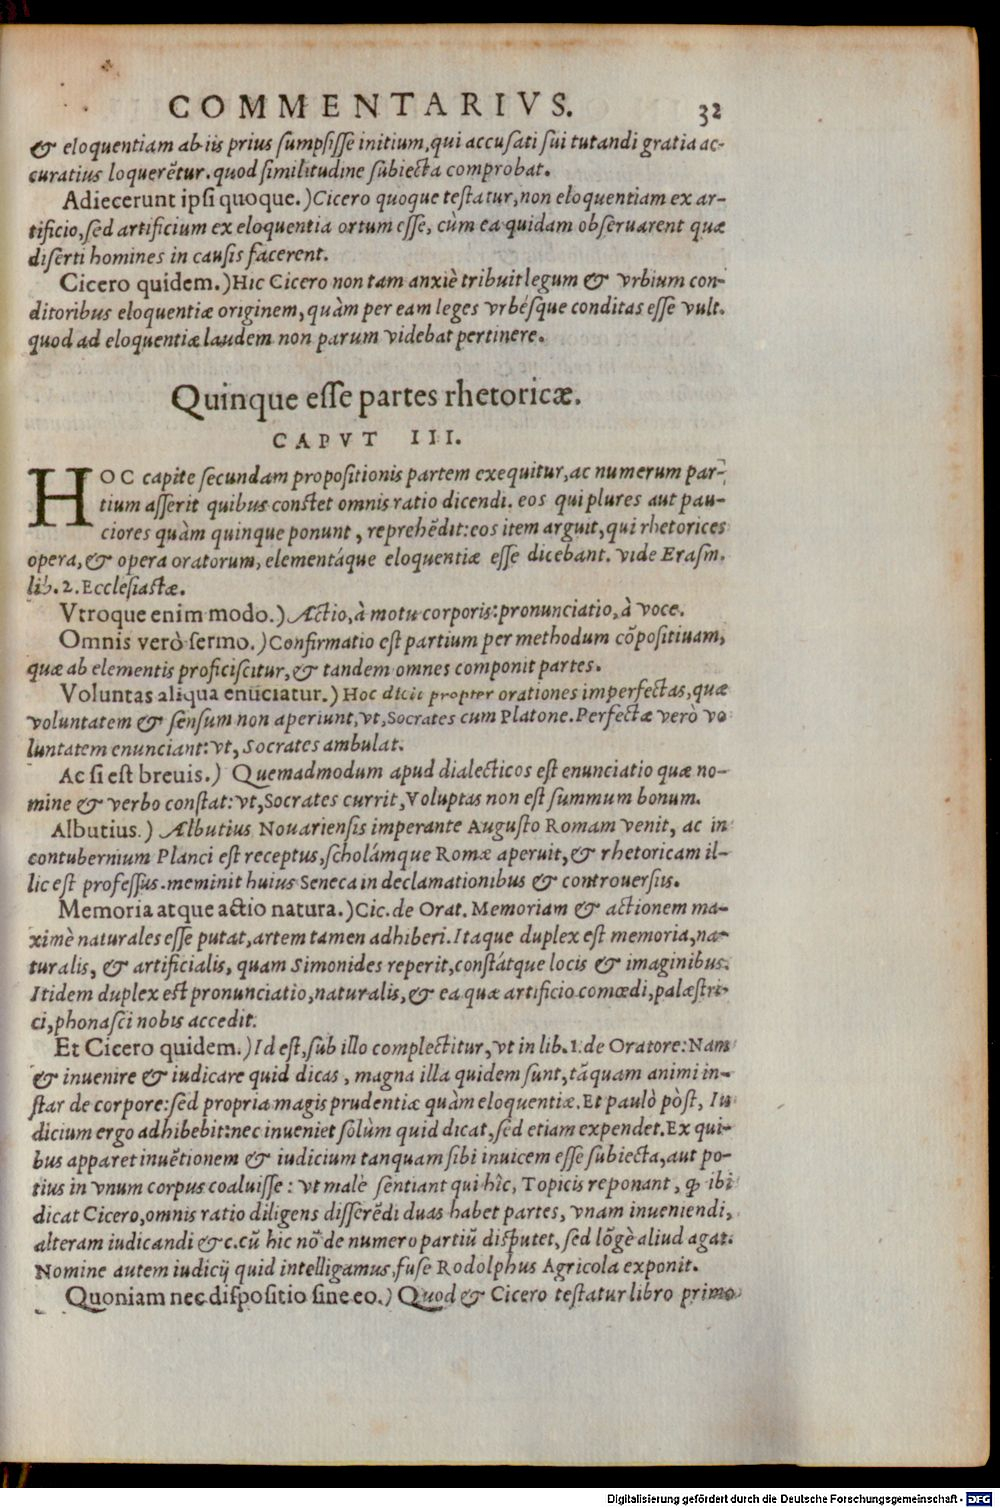 COMMENTARIVS. 32
& eloquentiam ab iis prius ſumpſiſſe initium, qui accuſati ſui tutandi gratia ac-
curatius loquerētur. quod ſimilitudine ſubiecta comprobat.
Adiecerunt ipſi quoque.) Cicero quoque teſtatur, non eloquentiam ex ar-
tificio, ſed artificium ex eloquentia ortum eſſe, cùm ea quidam obſeruarent quæ
diſerti homines in cauſis facerent.
Cicero quidem.) Hic Cicero non tam anxiè tribuit legum & vrbium con-
ditoribus eloquentiæ originem, quàm per eam leges vrbésque conditas eſſe vult.
quod ad eloquentiæ laudem non parum videbat pertinere.
Quinque eſſe partes rhetoricæ.
CAPVT III.
HOC capite ſecundam propoſitionis partem exequitur, ac numerum par-
tium aſſerit quibus conſtet omnis ratio dicendi. eos qui plures aut pau-
ciores quàm quinque ponunt, reprehēdit: eos item arguit, qui rhetorices
opera, & opera oratorum, elementáque eloquentiæ eſſe dicebant. vide Eraſm.
lib. 2. Eccleſiaſtæ.
Vtroque enim modo.) Actio, à motu corporis: pronunciatio, à voce.
Omnis verò ſermo.) Confirmatio eſt partium per methodum cōpoſitiuam,
quæ ab elementis proficiſcitur, & tandem omnes componit partes.
Voluntas aliqua enūciatur.) Hoc dicit propter orationes imperfectas, quæ
voluntatem & ſenſum non aperiunt, vt, Socrates cum Platone. Perfectæ verò vo
luntatem enunciant: vt, Socrates ambulat.
Ac ſi eſt breuis.) Quemadmodum apud dialecticos eſt enunciatio quæ no-
mine & verbo conſtat: vt, Socrates currit, Voluptas non eſt ſummum bonum.
Albutius.) Albutius Nouarienſis imperante Auguſto Romam venit, ac in
contubernium Planci eſt receptus, ſcholámque Romæ aperuit, & rhetoricam il-
lic eſt profeſſus. meminit huius Seneca in declamationibus & controuerſiis.
Memoria atque actio natura.) Cic. de Orat. Memoriam & actionem ma-
ximè naturales eſſe putat, artem tamen adhiberi. Itaque duplex eſt memoria, na-
turalis, & artificialis, quam Simonides reperit, conſtátque locis & imaginibus.
Itidem duplex eſt pronunciatio, naturalis, & ea quæ artificio comœdi, palæſtri-
ci, phonaſci nobis accedit.
Et Cicero quidem.) Id eſt, ſub illo complectitur, vt in lib. 1. de Oratore: Nam
& inuenire & iudicare quid dicas, magna illa quidem ſunt, tāquam animi in-
ſtar de corpore: ſed propria magis prudentiæ quàm eloquentiæ. Et paulò pòſt, Iu
dicium ergo adhibebit: nec inueniet ſolùm quid dicat, ſed etiam expendet. Ex qui-
bus apparet inuētionem & iudicium tanquam ſibi inuicem eſſe ſubiecta, aut po-
tius in vnum corpus coaluiſſe: vt malè ſentiant qui hîc, Topicis reponant, ꝙ ibi
dicat Cicero, omnis ratio diligens diſſerēdi duas habet partes, vnam inueniendi,
alteram iudicandi &c. cū hic nō de numero partiū diſputet, ſed lōgè aliud agat.
Nomine autem iudicij quid intelligamus, fuſe Rodolphus Agricola exponit.
Quoniam nec diſpoſitio ſine eo.) Quod & Cicero teſtatur libro primo
Digitalisierung gefördert durch die Deutsche Forschungsgemeinschaft - DFG